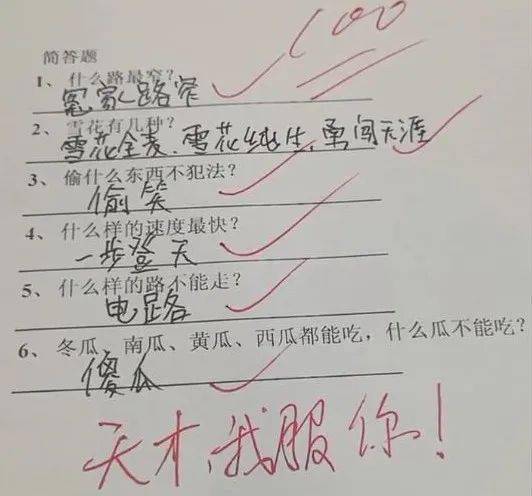 100
简答题
1、什么路最窄?
冤家路窄
2、雪花有几种?
雪花全麦、雪花纯生、勇闯天涯
3、偷什么东西不犯法?
偷笑
4、什么样的速度最快?
一步登天
5、什么样的路不能走?
电路
6、冬瓜、南瓜、黄瓜、西瓜都能吃，什么瓜不能吃?
傻瓜
天才,我服你!